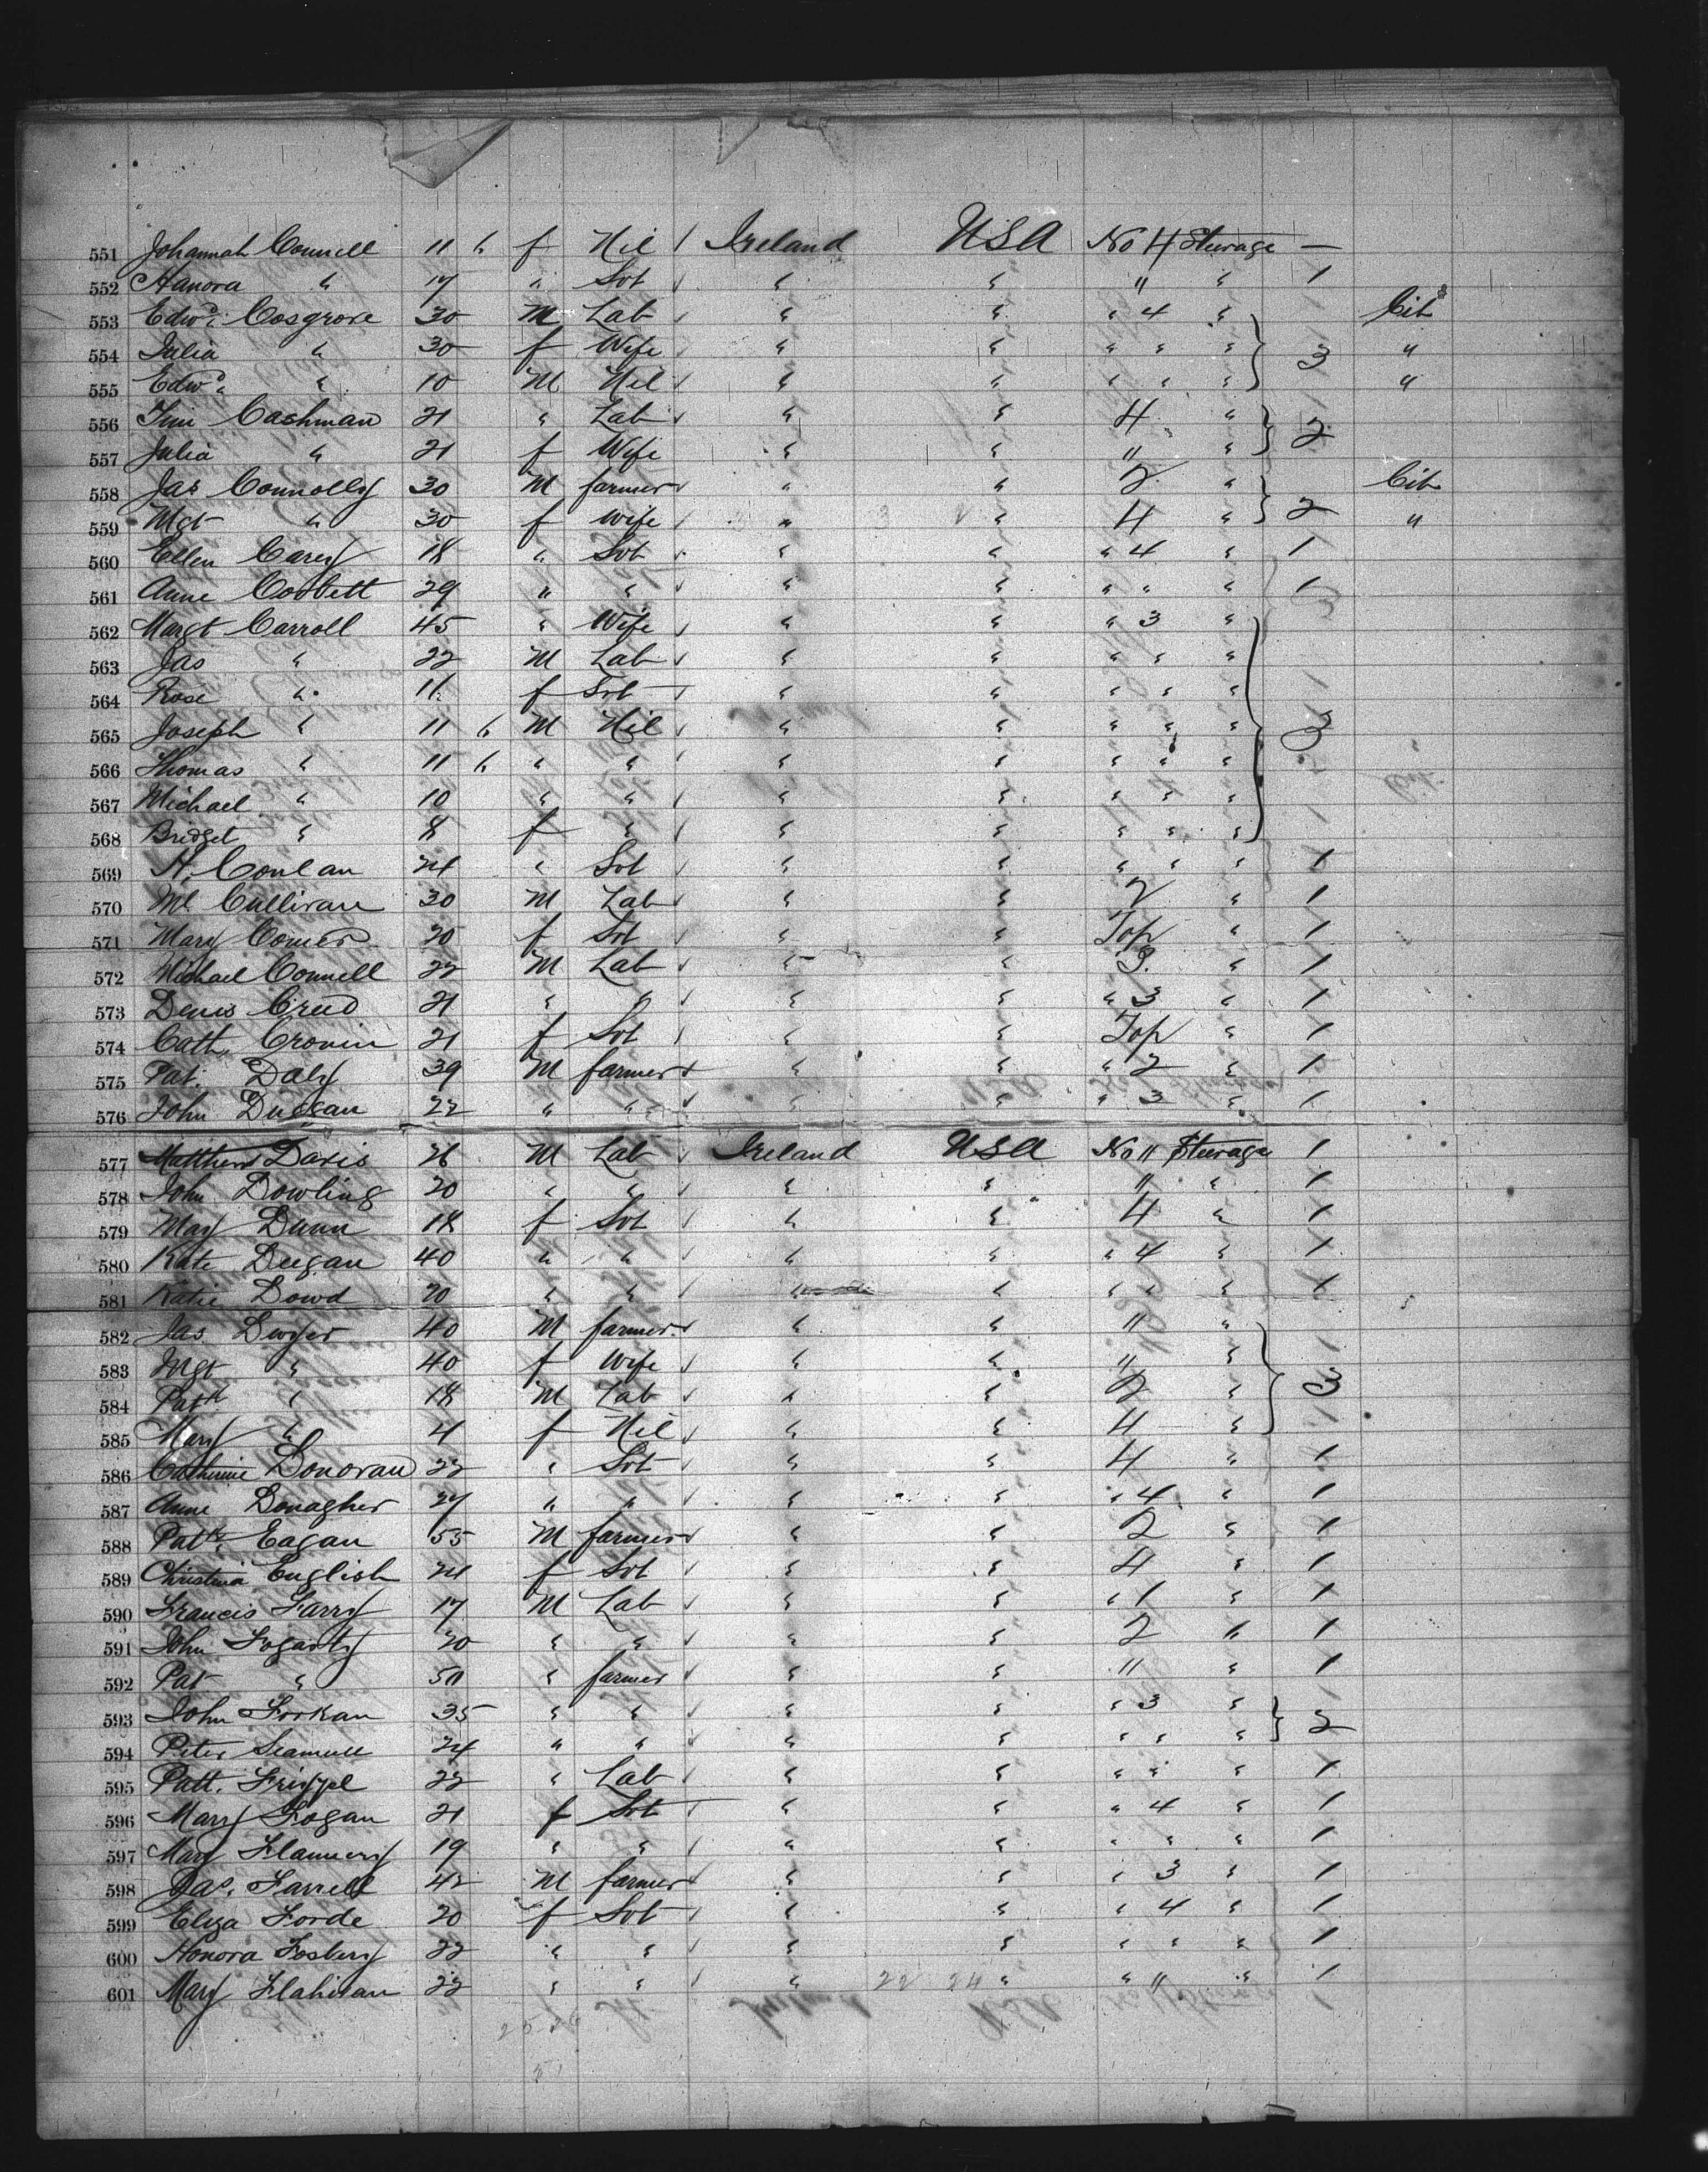 551 Johannah Connell 11 6 f Nil / Ireland USA No 4 Steerage —
552 Hanora " 17 " Svt " " " " 1
553 Edwd. Cosgrove 30 M Lab " " " 4 " Cit
554 Julia " 30 f Wife " " " " " 3 "
555 Edwd. " 10 M Nil " " " " " "
556 Tim Cashman 21 " Lab " " 4 "
557 Julia " 21 f Wife " " " " 2
558 Jas Connolly 30 M farmer " " 2 " Cit
559 Mgt " 30 f Wife " " 4 " 2 "
560 Ellen Carey 18 " Svt " " " 4 " 1
561 Anne Corbett 29 " " " " " " " 1
562 Margt Carroll 45 " Wife " " " 3 "
563 Jas " 22 M Lab " " " " "
564 Rose " 11 f Svt " " " " "
565 Joseph " 11 6 M Nil " " " " " 3
566 Thomas " 11 6 " " " " " " "
567 Michael " 10 " " " " " " "
568 Bridget " 8 f " " " " " "
569 A. Conlan 24 " Svt " " " " " 1
570 Ml Cullivan 30 M Lab " " 2 " 1
571 Mary Comer 20 f Svt " " Top " 1
572 Michael Connell 22 M Lab " " 3. " 1
573 Denis Creed 21 " " " " " 3 " 1
574 Cath. Cronin 21 f Svt " " Top " 1
575 Pat. Daly 39 M farmer " " " 2 " 1
576 John Duggan 22 " " " " " 3 " 1
577 Matthew Davis 26 M Lab Ireland USA No " Steerage 1
578 John Dowling 20 " " " " " " 1
579 Mary Dunn 18 f Svt " " 4 " 1
580 Kate Deegan 40 " " " " " 4 " 1
581 Katie Dowd 20 " " " " " " " 1
582 Jas Dwyer 40 M farmer " " " "
583 Mgt " 40 f Wife " " " "
584 Patk " 18 M Lab " " 2 " 3
585 Mary " 4 f Nil " " 4 "
586 Catherine Donovan 22 " Svt " " 4 " 1
587 Anne Donagher 27 " " " " " 4 " 1
588 Patk. Eagan 55 M farmer " " 2 " 1
589 Christina English 24 f Svt " " 4 " 1
590 Francis Farry 17 M Lab " " " 1 " 1
591 John Fogarty 20 " " " " 2 " 1
592 Pat " 50 " farmer " " " " 1
593 John Forkan 35 " " " " " 3 "
594 Peter 24 " " " " " " " 2
595 Patt. 22 " Lab " " " " " 1
596 Mary Fogan 21 f Svt " " " 4 " 1
597 Mary Flannery 19 " " " " " " " 1
598 Jas. Farrell 42 M farmer " " " 3 " 1
599 Eliza Forde 20 f Svt " " " 4 " 1
600 Honora Fosbery 22 " " " " " " " 1
601 Mary Flahivan 22 " " " 22 24 " " " " 1
25 26
51